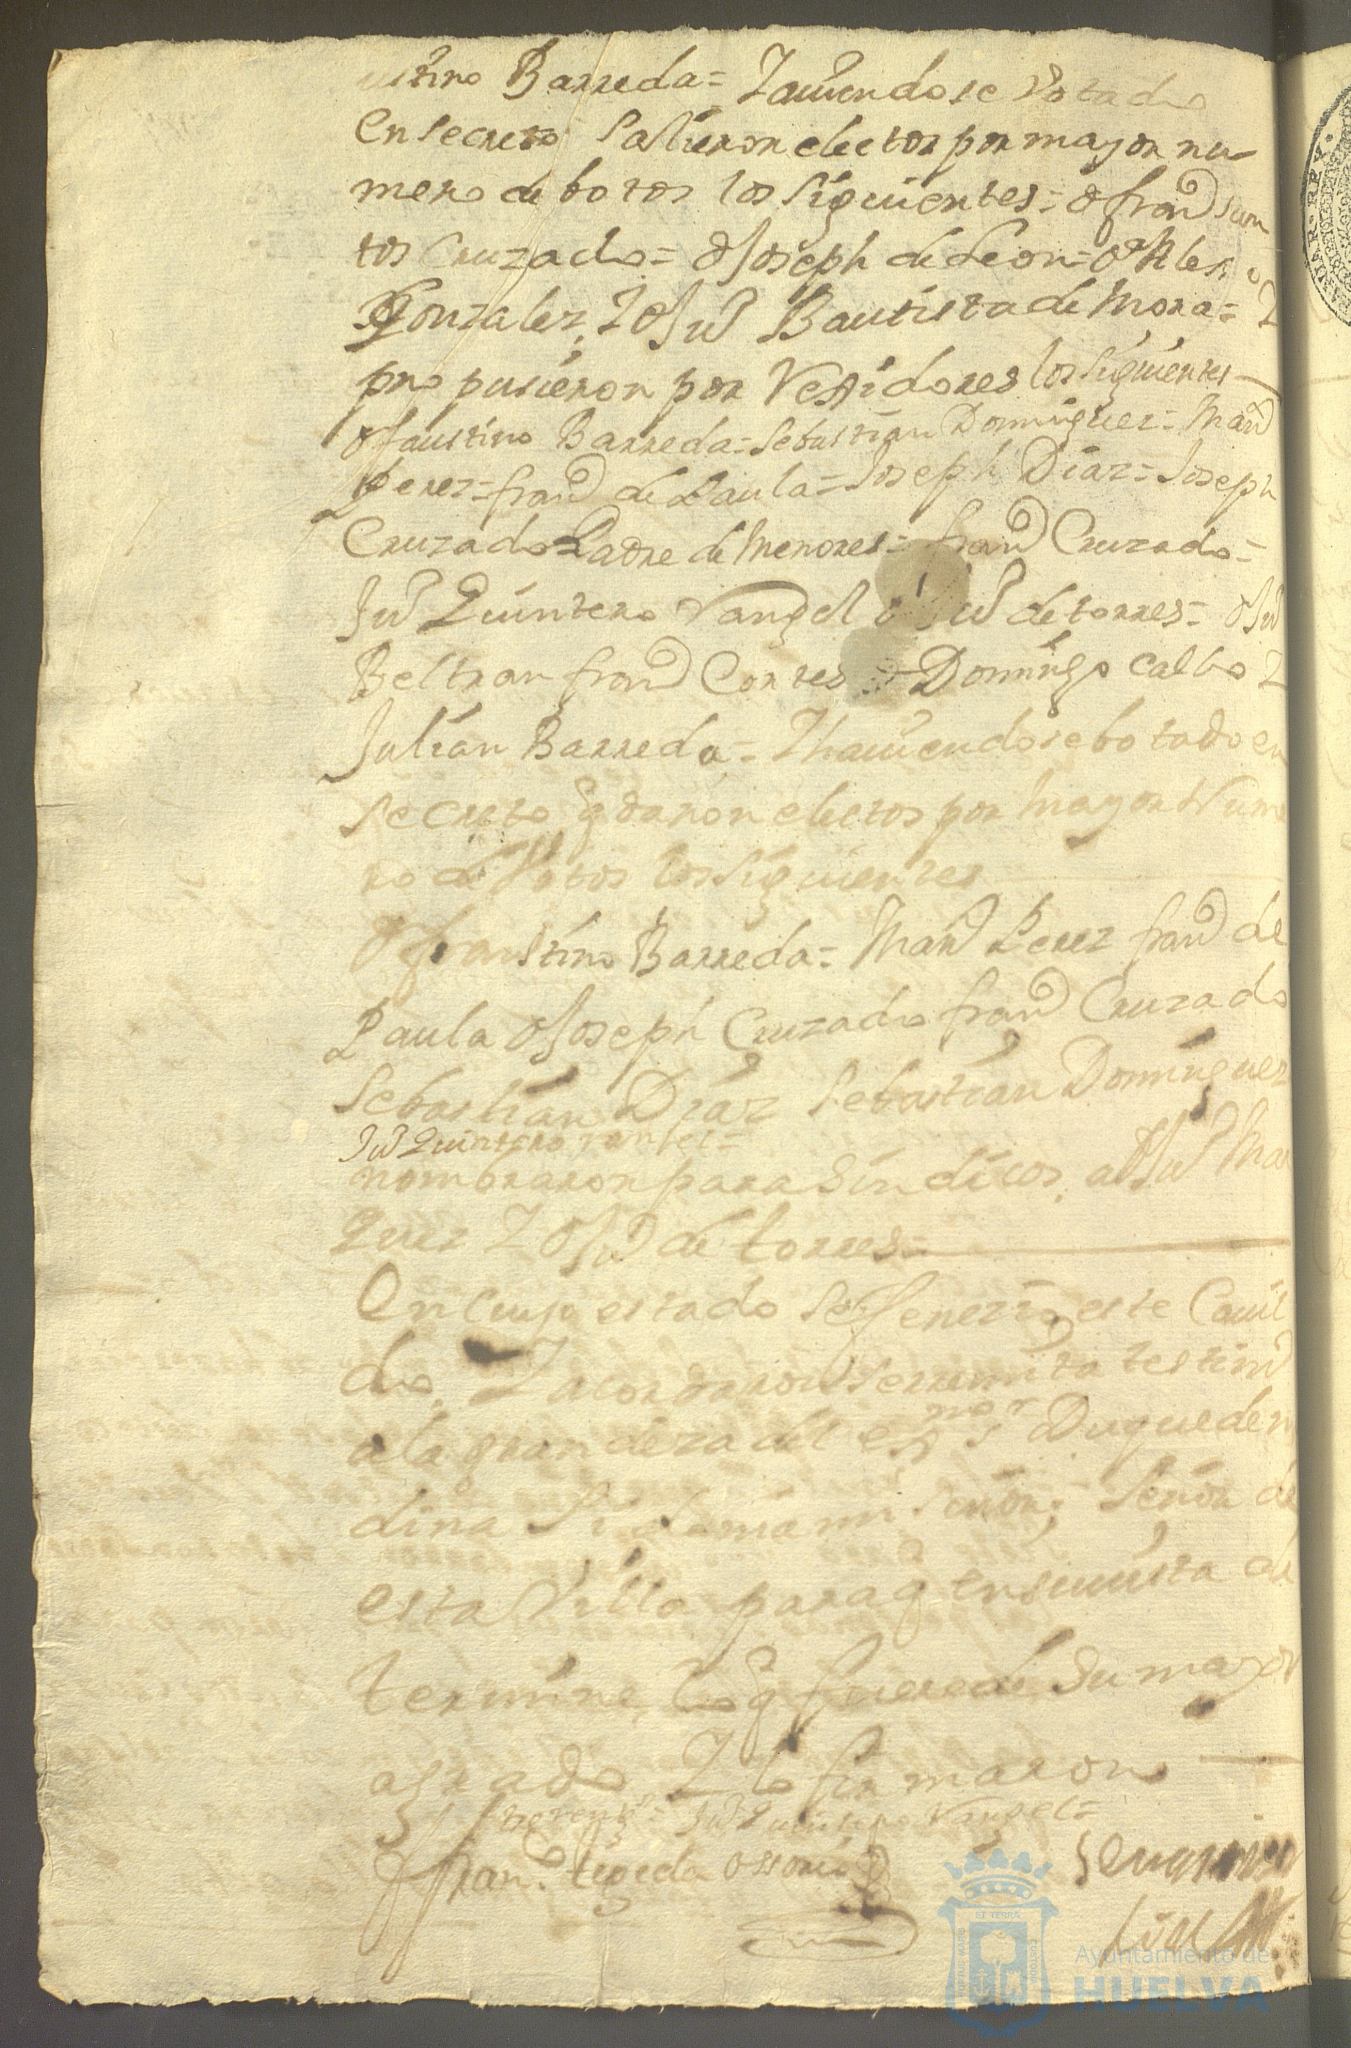 ustino Barreda = Y aviendose Votado
en secreto Salieron electos por mayor nu-
mero de botos los Siguientes = Dn Franco San
tos Cruzado = Dn Joseph de Leon = Dn Alexo
Gonzalez, Y Dn Juo Bautista de Mora = Y
pro pusieron por Rexidores los Siguientes
Dn Faustino Barreda = Sebastian Dominguez = Manl
Perez = Franco de Paula = Joseph Diaz = Joseph
Cruzado = Padre de Menores = Franco Cruzado =
Juo Quintero Vangel Juo de torres = Dn Juo
Beltran Franco Cortes = Domingo Calbo Y
Julian Barreda = Y haviendose botado en
secreto qdaron electos por Mayor Nume
ro de Votos los Siguientes
Dn Faustino Barreda = Manl Perez Franco de
Paula Dn Joseph Cruzado Franco Cruzado
Sebastian Diaz Sebastian Dominguez
Juo Quintero Vangel =
nombraron para Sindicos, a Dn Juo Mar
quez Y Dn Juo de torres =
En cuyo estado Se fenezio este Cavil
do, Y acordaron Se remita testimo
a la grandeza del exmo Sr Duque de Me
dina Sidonia mi Señor, Señor de
esta Villa para q en su vista de
termine lo q fuere de Su mayor
agrado Y lo firmaron
Juo Quintero Vangel =
Franco tejeda ossorio